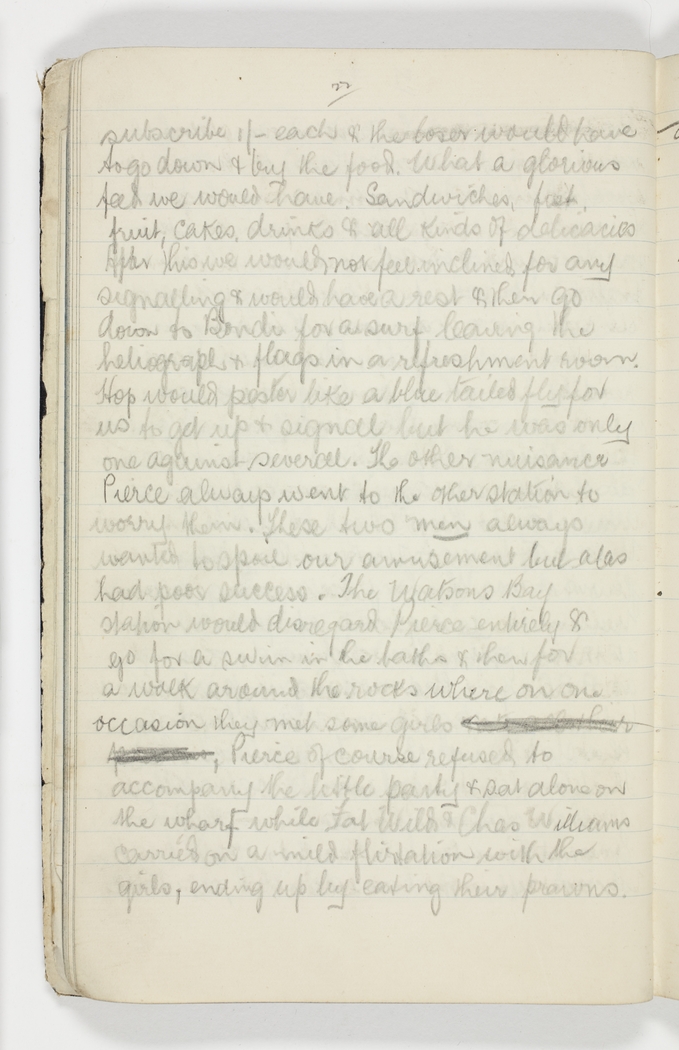 22
subscribe 1/- each & the loser would have
to go down & buy the food. What a glorious
feed we would have. Sandwiches,
fruit, cakes, drinks & all kinds of delicacies
After this we would not feel inclined for any
signalling & would have a rest & then go
down to Bondi for a surf leaving the
heliograph & flags in a refreshment room.
Hop would pester like a blue tailed fly for
us to get up & signal but he was only
one against several. The other nuisance
Pierce always went to the other station to
worry them. These two men always
wanted to spoil our amusement but alas
had poor success. The Watsons Bay
station would disregard Pierce entirely &
go for a swim in the baths & then for
a walk around the rocks where on one
occasion they met some girls
, Pierce of course refused to
accompany the little party & sat alone on
the wharf while Fat Wild & Chas Williams
carried on a mild flirtation with the
girls, ending up by eating their prawns.